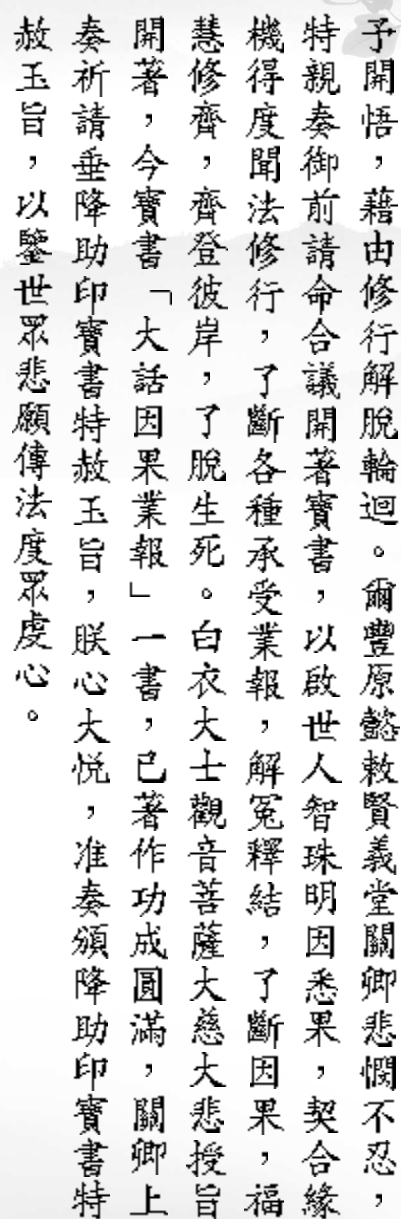 予開悟，藉由修行解脫輪迴。爾豐原懿敕賢義堂關卿悲憫不忍，
特親奏御前請命合議開著寶書，以啟世人智珠明因悉果，契合緣
機得度聞法修行，了斷各種承受業報，解冤釋結，了斷因果，福
慧修齊，齊登彼岸，了脫生死。白衣大士觀音菩薩大慈大悲授旨
開著，今寶書「大話因果業報」一書，已著作功成圓滿，關卿上
奏祈請垂降助印寶書特赦玉旨，朕心大悅，准奏頒降助印寶書特
赦玉旨，以鑒世眾悲願傳法度眾虔心。